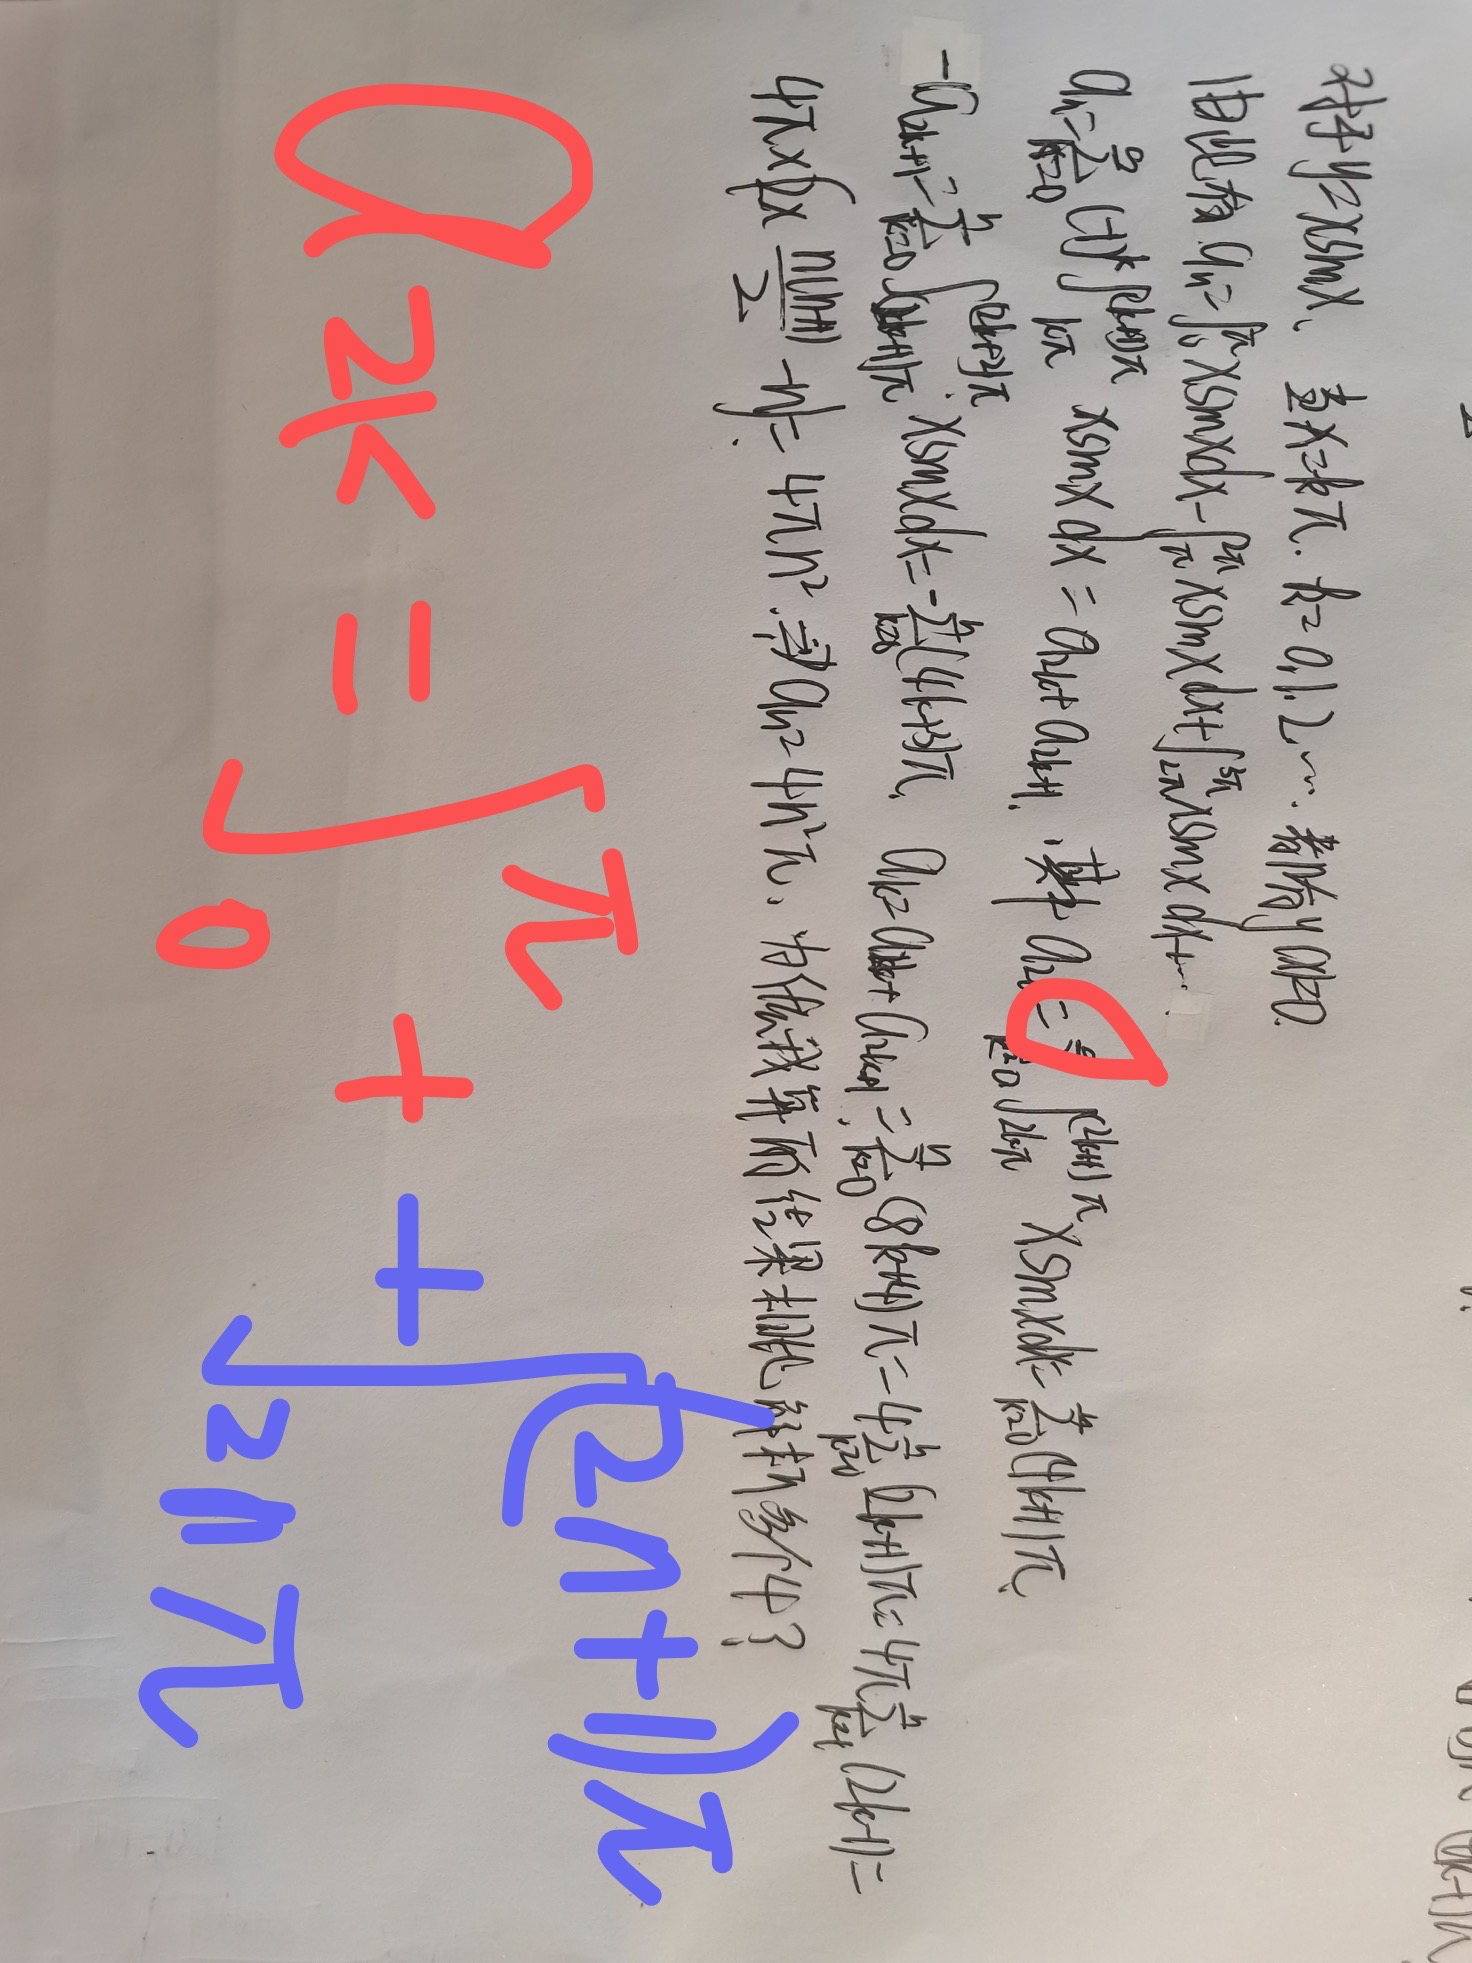 对于y=xsinx, 当x=kπ. k=0,1,2…. 都有y(x)=0.
由此有 aₙ=∫₀^π xsinxdx-∫_π^{2π} xsinxdx+∫_{2π}^{3π} xsinxdx+…
aₙ=∑_{k=0}^{n} (-1)^k ∫_{kπ}^{(k+1)π} xsinxdx = a₂ₖ+a₂ₖ₊₁. 其中 a₂ₖ=∑_{k=0} ∫_{2kπ}^{(2k+1)π} xsinxdx=∑_{k=0}^{n}(4k+1)π.
-a₂ₖ₊₁=∑_{k=0}^{n} ∫_{(2k+1)π}^{(2k+2)π} xsinxdx=-∑_{k=0}^{n}(4k+3)π. aₖ=a₂ₖ+a₂ₖ₊₁=∑_{k=0}^{n}(8k+4)π=4∑_{k=0}^{n}(2k+1)π=4π∑_{k=1}^{n}(2k-1)=
4π×[2×n(n+1)/2-n]=4πn². 即aₙ=4n²π. 为什么我算的结果相比解析多个4?
a2k=∫₀^π++∫_{2nπ}^{(2n+1)π}